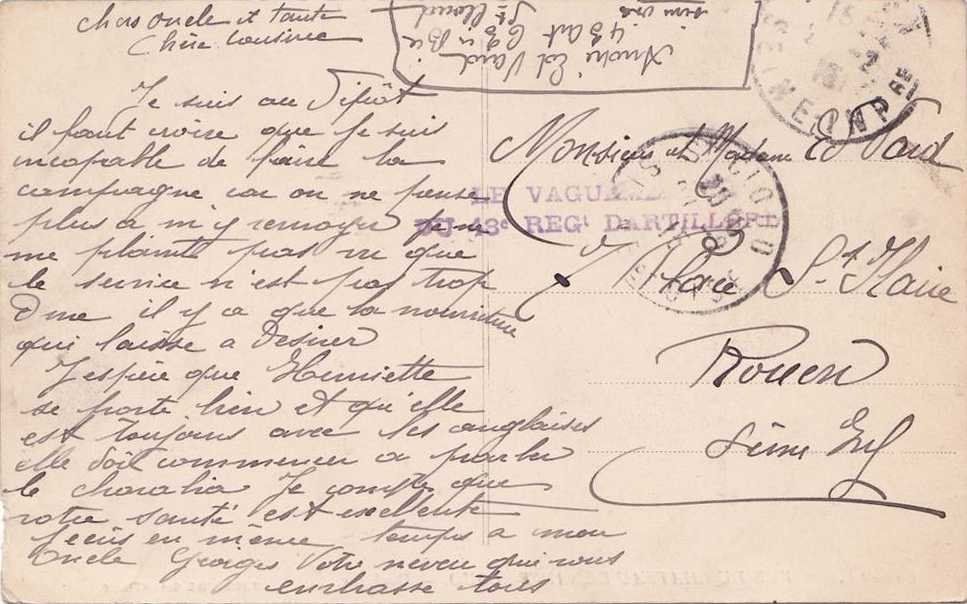 Chers oncle et tante
Chère cousine
Je suis au Dépôt
il faut croire que je suis
incapable de faire la
campagne car on ne pense
plus a m'y renvoyer je ne
me plaints pas vu que
le service n'est pas trop
Dure il y a que la nourriture
qui laisse a Désirer
J'espère que Henriette
se porte bien et qu'elle
est toujours avec ses anglaises
elle doit commencer a parler
le
Je compte que
votre santé est excellente
J'ecris en même temps a mon
Oncle Georges Votre neveu qui vous
embrasse tous
André Ed Vard
43 Art 63
St Cloud
LE VAGUE
DU 43e REGt D'ARTILLERIE
ST CLOUD
SEINE-INFRE
Monsieur et Madame Ed Vard
7 Place St Hilaire
Rouen
Seine Inf